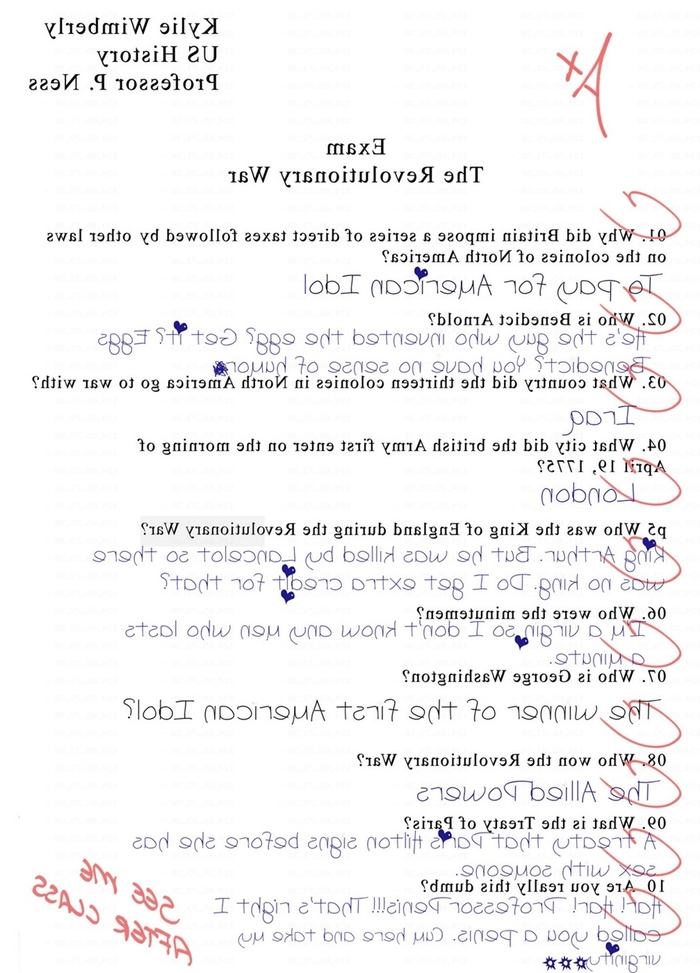 Kylie Wimberly
US History
Professor P. Ness
A+
Exam
The Revolutionary War
01. Why did Britain impose a series of direct taxes followed by other laws
on the colonies of North America?
To pay for American Idol
02. Who is Benedict Arnold?
He's the guy who invented the egg? Get it? Eggs
Benedict? You have no sense of humor
03. What country did the thirteen colonies in North America go to war with?
Iraq
04. What city did the british Army first enter on the morning of
April 19, 1775?
London
p5 Who was the King of England during the Revolutionary War?
King Arthur. But he was killed by Lancelot so there
was no king. Do I get extra credit for that?
06. Who were the minutemen?
I'm a virgin so I don't know any men who lasts
a minute.
07. Who is George Washington?
The winner of the first American Idol?
08. Who won the Revolutionary War?
The Allied Powers
09. What is the Treaty of Paris?
A treaty that Paris Hilton signs before she has
sex with someone.
10. Are you really this dumb?
Har! Har! Professor Penis!!! That's right I
called you a penis. Cum here and take my
virginity
SEE ME
AFTER CLASS